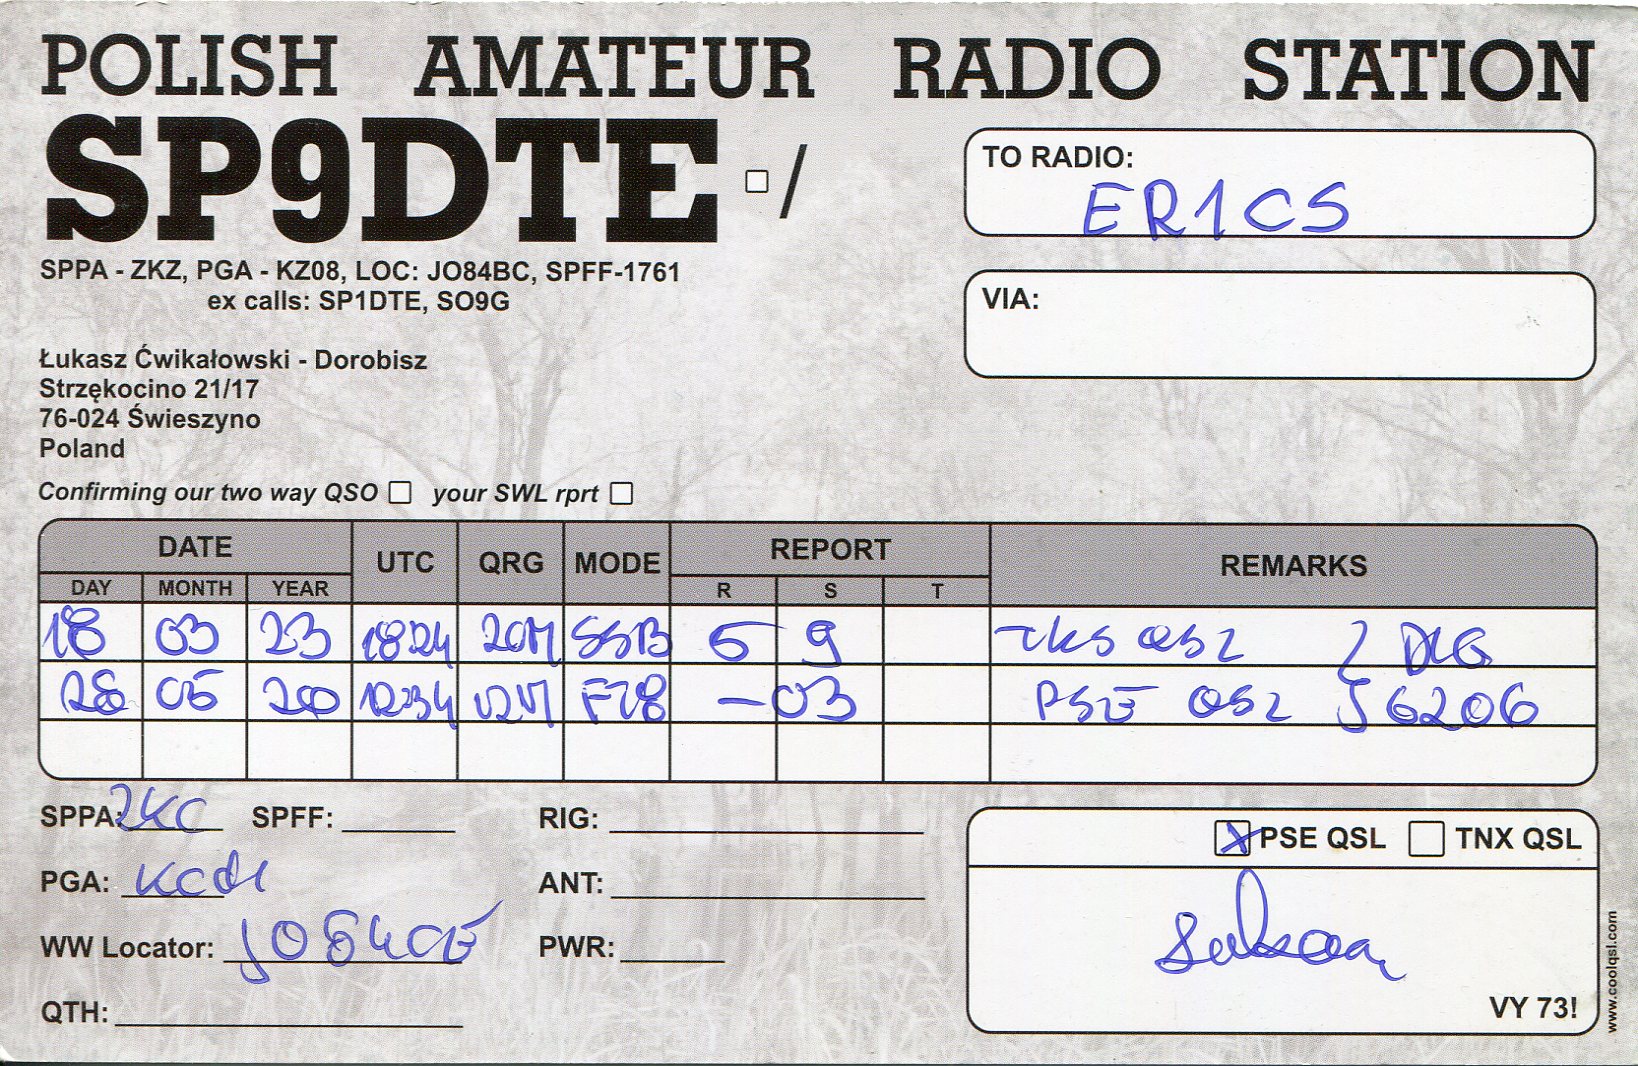 POLISH AMATEUR RADIO STATION
SP9DTE /
SPPA - ZKZ, PGA - KZ08, LOC: JO84BC, SPFF-1761
ex calls: SP1DTE, SO9G
TO RADIO:
ER1CS
VIA:
Łukasz Ćwikałowski - Dorobisz
Strzękocino 21/17
76-024 Świeszyno
Poland
Confirming our two way QSO your SWL rprt
DATE UTC QRG MODE REPORT REMARKS
DAY MONTH YEAR R S T
18 03 23 1824 20M SSB 5 9
28 05 20 1234 12M FT8 -03 PSE
6206
SPPA: SPFF: RIG:
PGA: ANT:
WW Locator: JO84CE PWR:
QTH:
X PSE QSL TNX QSL
VY 73!
www.coolqsl.com